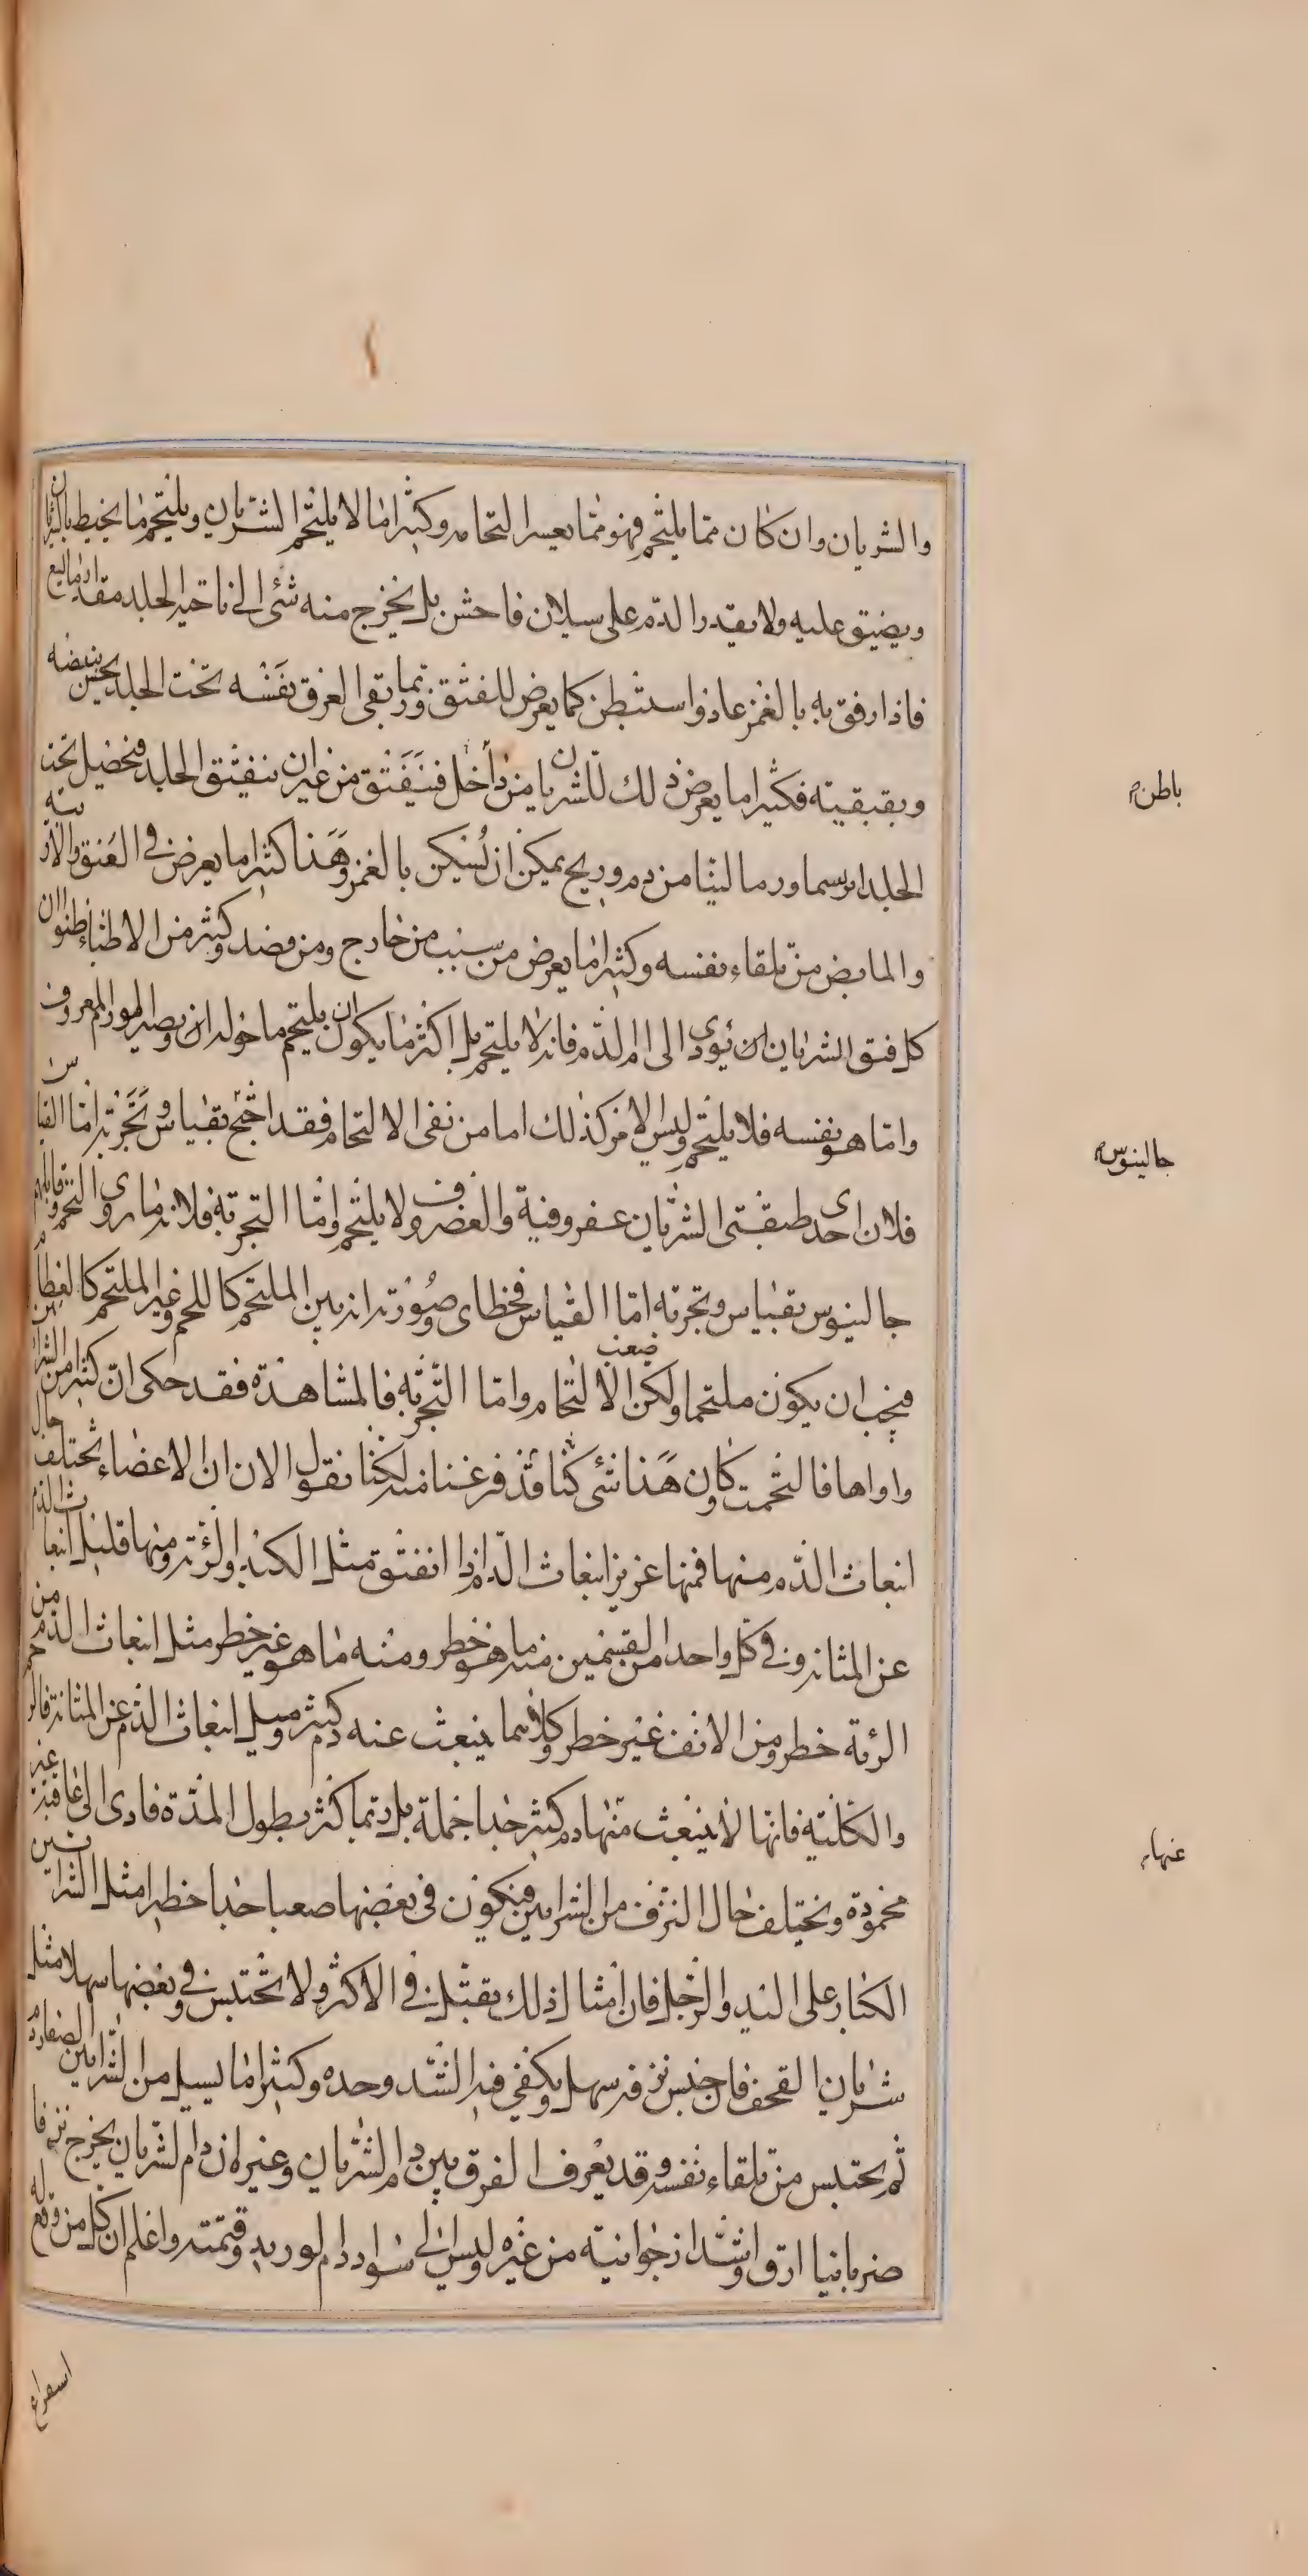 والشريان وان كان مما يلتحم فهو مما يعسر التحامه وكثيرا ما لا يلتحم الشريان ويلتحم ما يحيط بالشريان
ويضيق عليه ولا يقدر الدم على سيلان فاحش بل يخرج منه شئ الى ناحية الجلد مقدار ما يسع
فاذا رفق به بالغمز عاد واستبطن كما يعرض للفتق وربما بقى العرق نفسه تحت الجلد يحس بنبضه
وبقبقيته فكثيرا ما يعرض ذلك للشريان من داخل فينفتق من غير ان ينفتق الجلد فيحصل تحت
باطن
الجلد ورما لينا من دم وريح يمكن ان يسكن بالغمز وهذا كثيرا ما يعرض في العنق والاربية
والمابض من تلقاء نفسه وكثيرا ما يعرض من سبب من خارج ومن فصد وكثير من الاطباء ظنوا ان
كل فتق الشريان يؤدى الى ام الدم فانه لا يلتحم بل اكثر ما يكون ان يلتحم ما حوله ويصير الورم المعروف
واما هو نفسه فلا يلتحم وليس الامر كذلك اما من نفى الالتحام فقد احتج بقياس وتجربة اما القياس
فلان احدى طبقتى الشريان غضروفية والغضروف لا يلتحم واما التجربة فلانه ما روى التحم وقابلهم
جالينوس
جالينوس بقياس وتجربة اما القياس فخطاى وصورته انه بين الملتحم كاللحم وغير الملتحم كالعظام
فيجب ان يكون ملتحما ولكن صعب الالتحام واما التجربة فالمشاهدة فقد حكى ان كثيرا من الشرائين
داواها فالتحمت وكان هذا شئ كنا قد فرغنا منه لكنا نقول الان ان الاعضاء تختلف حال
انبعاث الدم منها فمنها غزير انبعاث الدم اذا انفتق مثل الكبد والرئة ومنها قليل انبعاث الدم
عن المثانة وفي كل واحد من القسمين منه ما هو خطر ومنه ما هو غير خطر مثل انبعاث الدم من
الرئة خطر ومن الانف غير خطر وكلاهما ينبعث عنه دم كثير ومثل انبعاث الدم عن المثانة
والكلية فانها لا ينبعث منها دم كثير جدا جملة بل ربما كثر بطول المدة فادى الى عاقبة غير
عنها
محمودة وتختلف حال النزف من الشرايين فيكون فى بعضها صعبا جدا خطرا مثل الشرائين
الكبار على اليد والرجل فان امثال ذلك يقتل في الاكثر ولا تحتبس وفي بعضها سهلا مثل
شريان القحف فان حبس نزفه سهل ويكفي فيه الشد وحده وكثيرا ما يسيل من الشرايين الصغار دم
ثم يحتبس من تلقاء نفسه وقد يعرف الفرق بين دم الشريان وغيره ان دم الشريان يخرج نزفا
ضربانيا ارق واشد ارجوانية من غيره وليس الى سواد دم الوريد وقتمته واعلم ان كل من وقع له